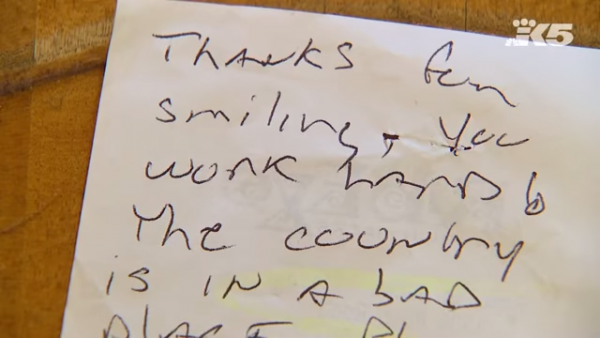 K5
THANKS for
smiling, you
WORK HARD &
The country
is IN A bAD
PLACE PL